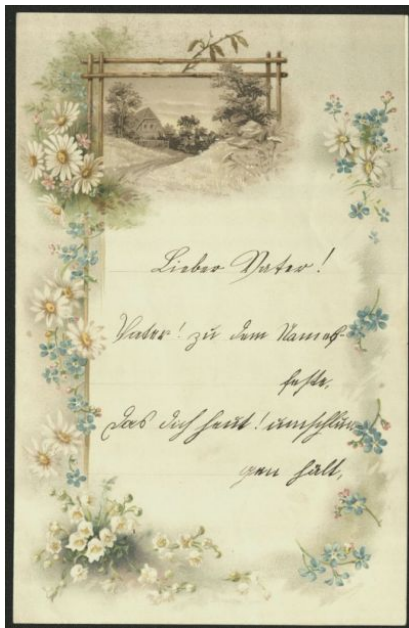 Lieber Vater!
Vater! zu dem Namens-
feste,
Das dich heut! umschlun-
gen hält,